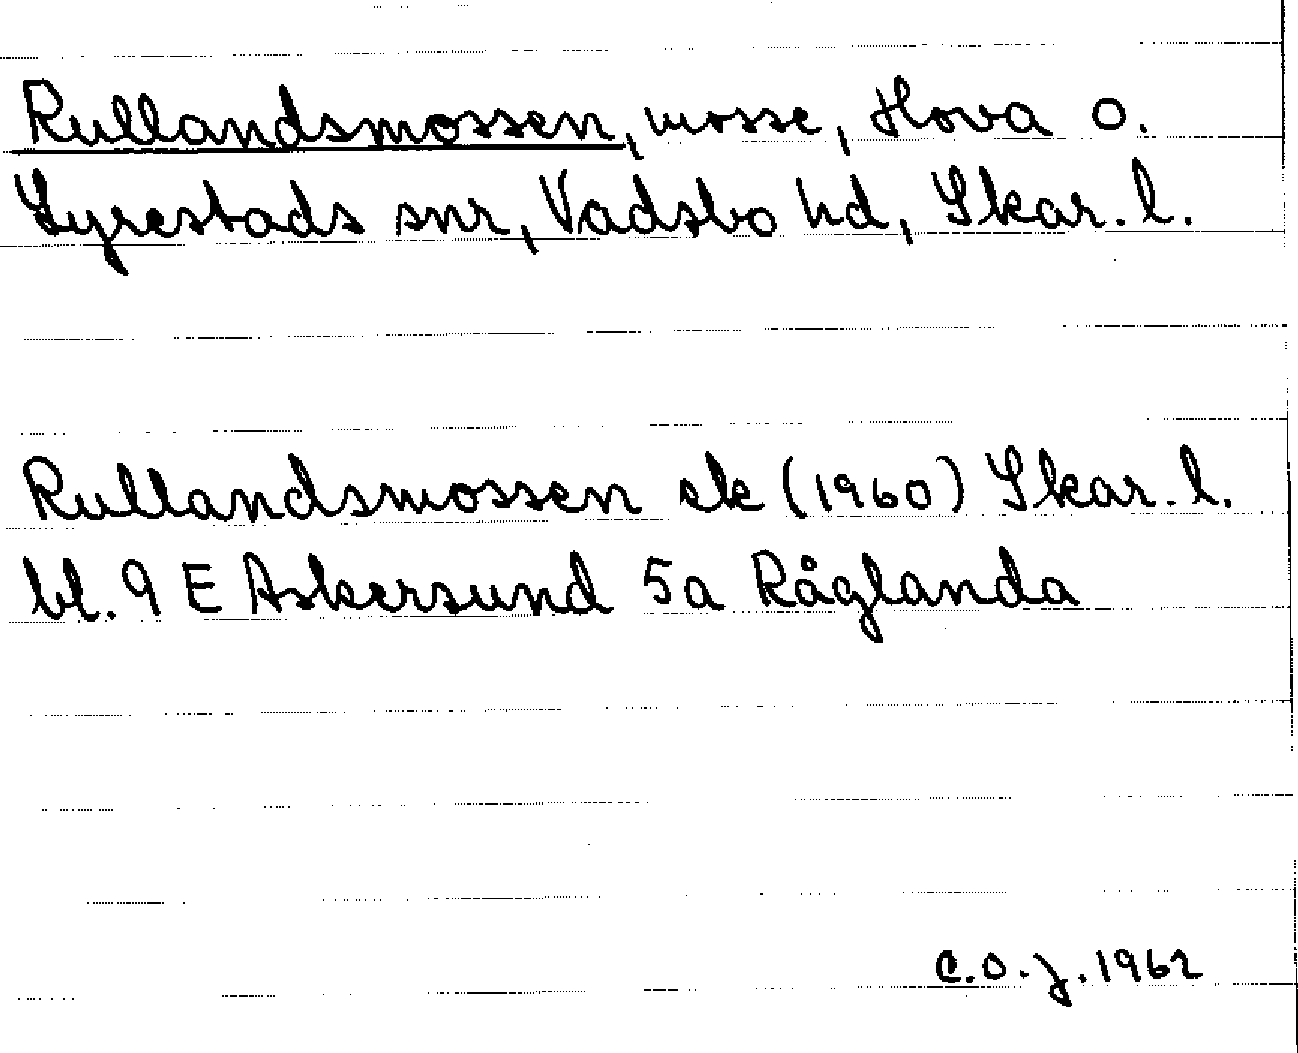 Rullandsmossen, mosse, Hova o.
Lyrestads snr, Vadsbo hd, Skar. l.
Rullandsmossen ek (1960) Skar. l.
bl. 9 E Askersund 5a Råglanda
C.O.J. 1962